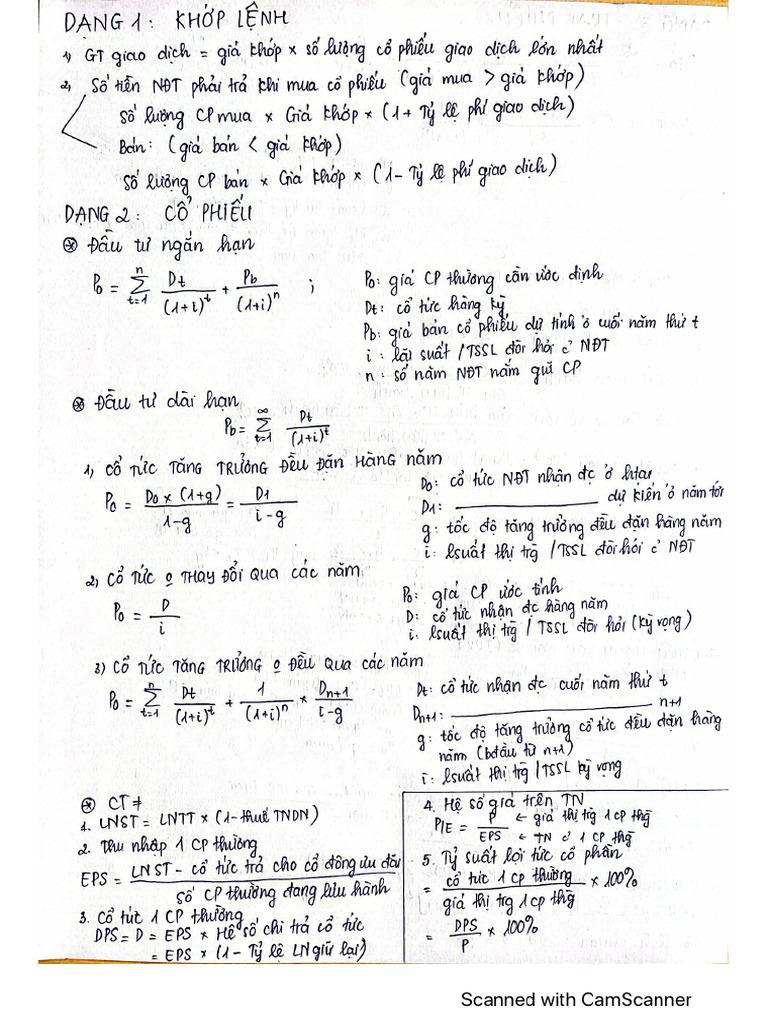 DẠNG 1: KHỚP LỆNH
1) GT giao dịch = giá khớp × số lượng cổ phiếu giao dịch lớn nhất
2) Số tiền NĐT phải trả khi mua cổ phiếu (giá mua > giá khớp)
Số lượng CP mua × Giá khớp × (1 + Tỷ lệ phí giao dịch)
Bán: (giá bán < giá khớp)
Số lượng CP bán × Giá khớp × (1 - Tỷ lệ phí giao dịch)
DẠNG 2: CỔ PHIẾU
⊛ Đầu tư ngắn hạn
P₀ = Σ(t=1→n) Dt/(1+i)^t + Pb/(1+i)^n ;
P₀: giá CP thường cần ước định
Dt: cổ tức hàng kỳ
Pb: giá bán cổ phiếu dự tính ở cuối năm thứ t
i: lãi suất /TSSL đòi hỏi c̉ NĐT
n: số năm NĐT nắm giữ CP
⊛ Đầu tư dài hạn
Pb = Σ(t=1→∞) Dt/(1+i)^t
1) CỔ TỨC TĂNG TRƯỞNG ĐỀU ĐẶN HÀNG NĂM
P₀ = D₀ × (1+g)/1-g = D1/i-g
D₀: cổ tức NĐT nhận đc ở htại
D1: ________ dự kiến ở năm tới
g: tốc độ tăng trưởng đều đặn hàng năm
i: lsuất thị trg /TSSL đòi hỏi c̉ NĐT
2) CỔ TỨC 0 THAY ĐỔI QUA CÁC NĂM
P₀ = D/i
P₀: giá CP ước tính
D: cổ tức nhận đc hàng năm
i: lsuất thị trg / TSSL đòi hỏi (kỳ vọng)
3) CỔ TỨC TĂNG TRƯỞNG 0 ĐỀU QUA CÁC NĂM
P₀ = Σ(t=1→n) Dt/(1+i)^t + 1/(1+i)^n × Dn+1/i-g
Dt: cổ tức nhận đc cuối năm thứ t
Dn+1: ________ n+1
g: tốc độ tăng trưởng cổ tức đều đặn hàng
năm (bđầu từ n+1)
i: lsuất thị trg /TSSL kỳ vọng
⊛ CT ≠
1. LNST = LNTT × (1-thuế TNDN)
2. Thu nhập 1 CP thường
EPS = LNST - cổ tức trả cho cổ đông ưu đãi / số CP thường đang lưu hành
3. Cổ tức 1 CP thường
DPS = D = EPS × Hệ số chi trả cổ tức
= EPS × (1 - Tỷ lệ LN giữ lại)
4. Hệ số giá trên TN
P/E = P/EPS ← giá thị trg 1 CP thg
← TN c̉ 1 CP thg
5. Tỷ suất lợi tức cổ phần
= cổ tức 1 CP thường / giá thị trg 1 cp thg × 100%
= DPS/P × 100%
Scanned with CamScanner